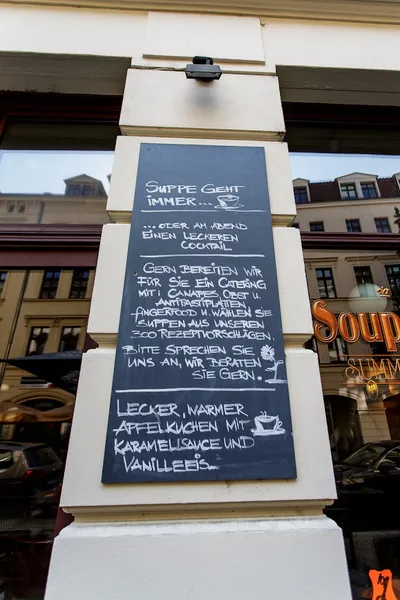 SUPPE GEHT
IMMER...
...ODER AM ABEND
EINEN LECKEREN
COCKTAIL
GERN BEREITEN WIR
FÜR SIE EIN CATERING
MIT: CANAPES, OBST U
ANTIPASTIPLATTEN,
FINGERFOOD U. WÄHLEN SIE
SUPPEN AUS UNSEREN
300 REZEPTVORSCHLÄGEN.
BITTE SPRECHEN SIE
UNS AN, WIR BERATEN
SIE GERN.
LECKER, WARMER
APFELKUCHEN MIT
KARAMELLSAUCE UND
VANILLEEIS...
Soup